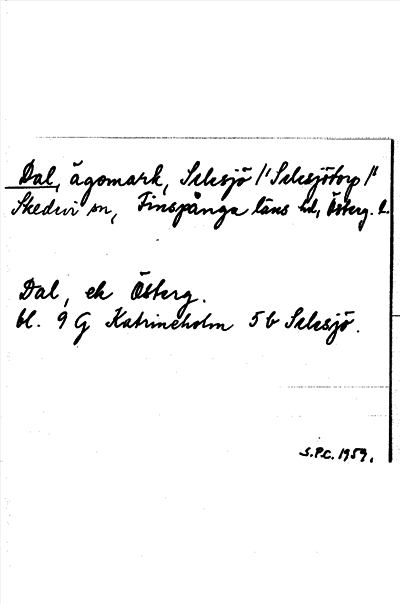 Dal, ägomark, Selesjö /'Selesjötorp/'
Skedevi sn, Finspånga läns hd, Österg. l.
Dal, ek Österg.
bl. 9 G Katrineholm 5 b Selesjö.
S.P.C. 1959.